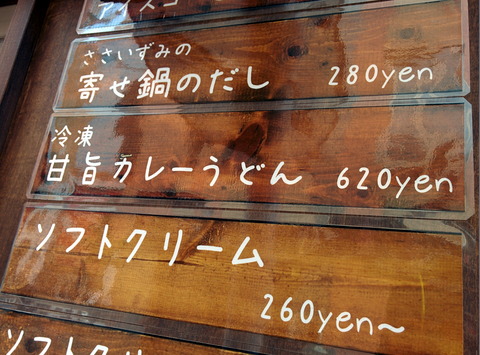 アイスコ
ささいずみの
寄せ鍋のだし 280yen
冷凍
甘旨カレーうどん 620yen
ソフトクリーム
260yen〜
ソフトクリー